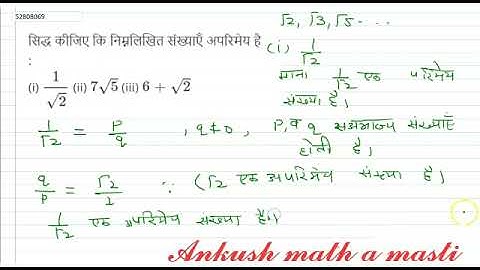 52808069
√2, √3, √5 - - -
सिद्ध कीजिए कि निम्नलिखित संख्याएँ अपरिमेय है
:
(i) 1/√2 (ii) 7√5 (iii) 6 + √2
(i) 1/√2
माना 1/√2 एक परिमेय
संख्या है।
1/√2 = P/q , q≠0, P, व q सहअभाज्य संख्याएँ
होती है।
q/P = √2/1 ∵ (√2 एक अपरिमेय संख्या है।
1/√2 एक अपरिमेय संख्या है।
Ankush math a masti